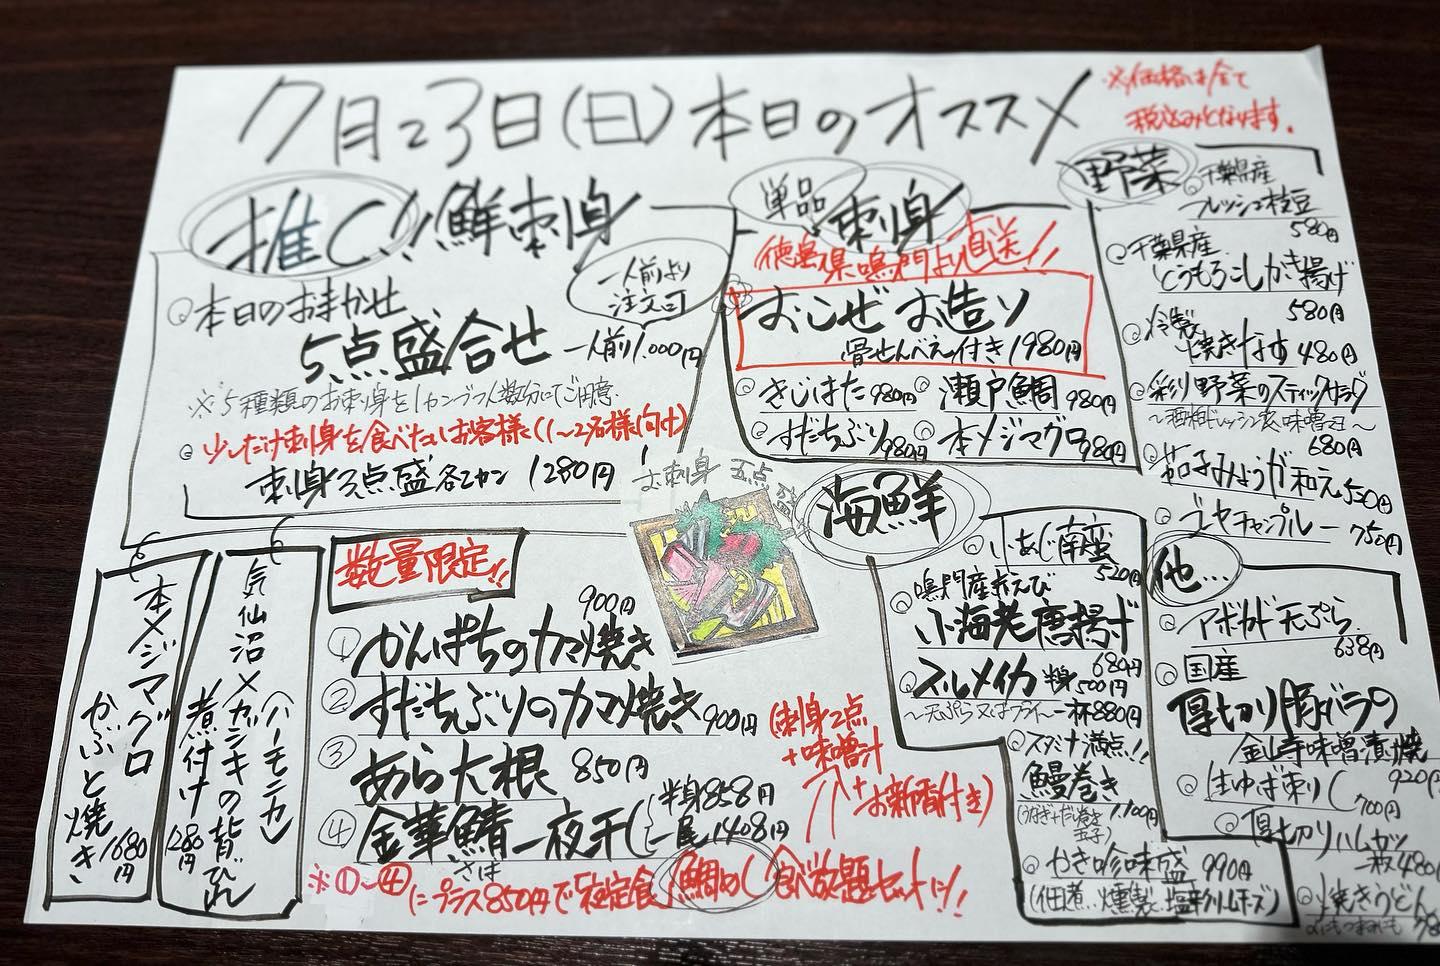 7月23日(日)本日のオススメ
※価格は全て
税込みとなります。
推し!!鮮刺身
一人前より
注文可
◎本日のおまかせ
5点盛合せ 一人前1.000円
※5種類のお刺身を1カンづつ人数分にてご用意
◎少しだけ刺身を食べたいお客様に(1〜2名様向け)
刺身3点盛各2カン 1280円
単品 刺身
徳島県鳴門より直送!!
◎おこぜお造り
骨せんべえ付き1980円
◎きじはた980円
◎瀬戸鯛980円
◎すだちぶり980円
◎本メジマグロ980円
野菜
◎千葉県産
フレッシュ枝豆
580円
◎千葉県産
とうもろこしかき揚げ
580円
◎冷製
焼きなす480円
◎彩り野菜のスティックサラダ
680円
◎茄子みょうが和え550円
◎ゴーヤチャンプルー
750円
お刺身五点盛
海鮮
◎小あじ南蛮
520円
◎鳴門産
小海老唐揚げ
680円
◎スルメイカ 半身500円
〜天ぷら又はフライ〜一杯880円
◎スタミナ満点!!
鰻巻き
(うなぎ+だし巻き玉子)1,100円
◎やき珍味盛 990円
(佃煮、燻製、塩辛クリームチーズ)
他…
◎アボカド天ぷら
638円
◎国産
厚切り豚バラの
金山寺味噌漬け焼
920円
◎生ゆば刺し
700円
◎厚切りハムカツ
一枚480
◎焼きうどん
数量限定!!
①かんぱちのカマ焼き
900円
②すだちぶりのカマ焼き
900円
③あら大根 850円
④金華鯖一夜干し
さば
半身858円
一尾1408円
※①〜④にプラス850円で定食 鯛めし食べ放題セットに!!
(刺身2点
+味噌汁
+
お新香付き)
気仙沼メカジキの背びれ
(ハーモニカ)
煮付け1280円
本メジマグロ
かぶと焼き
1680円